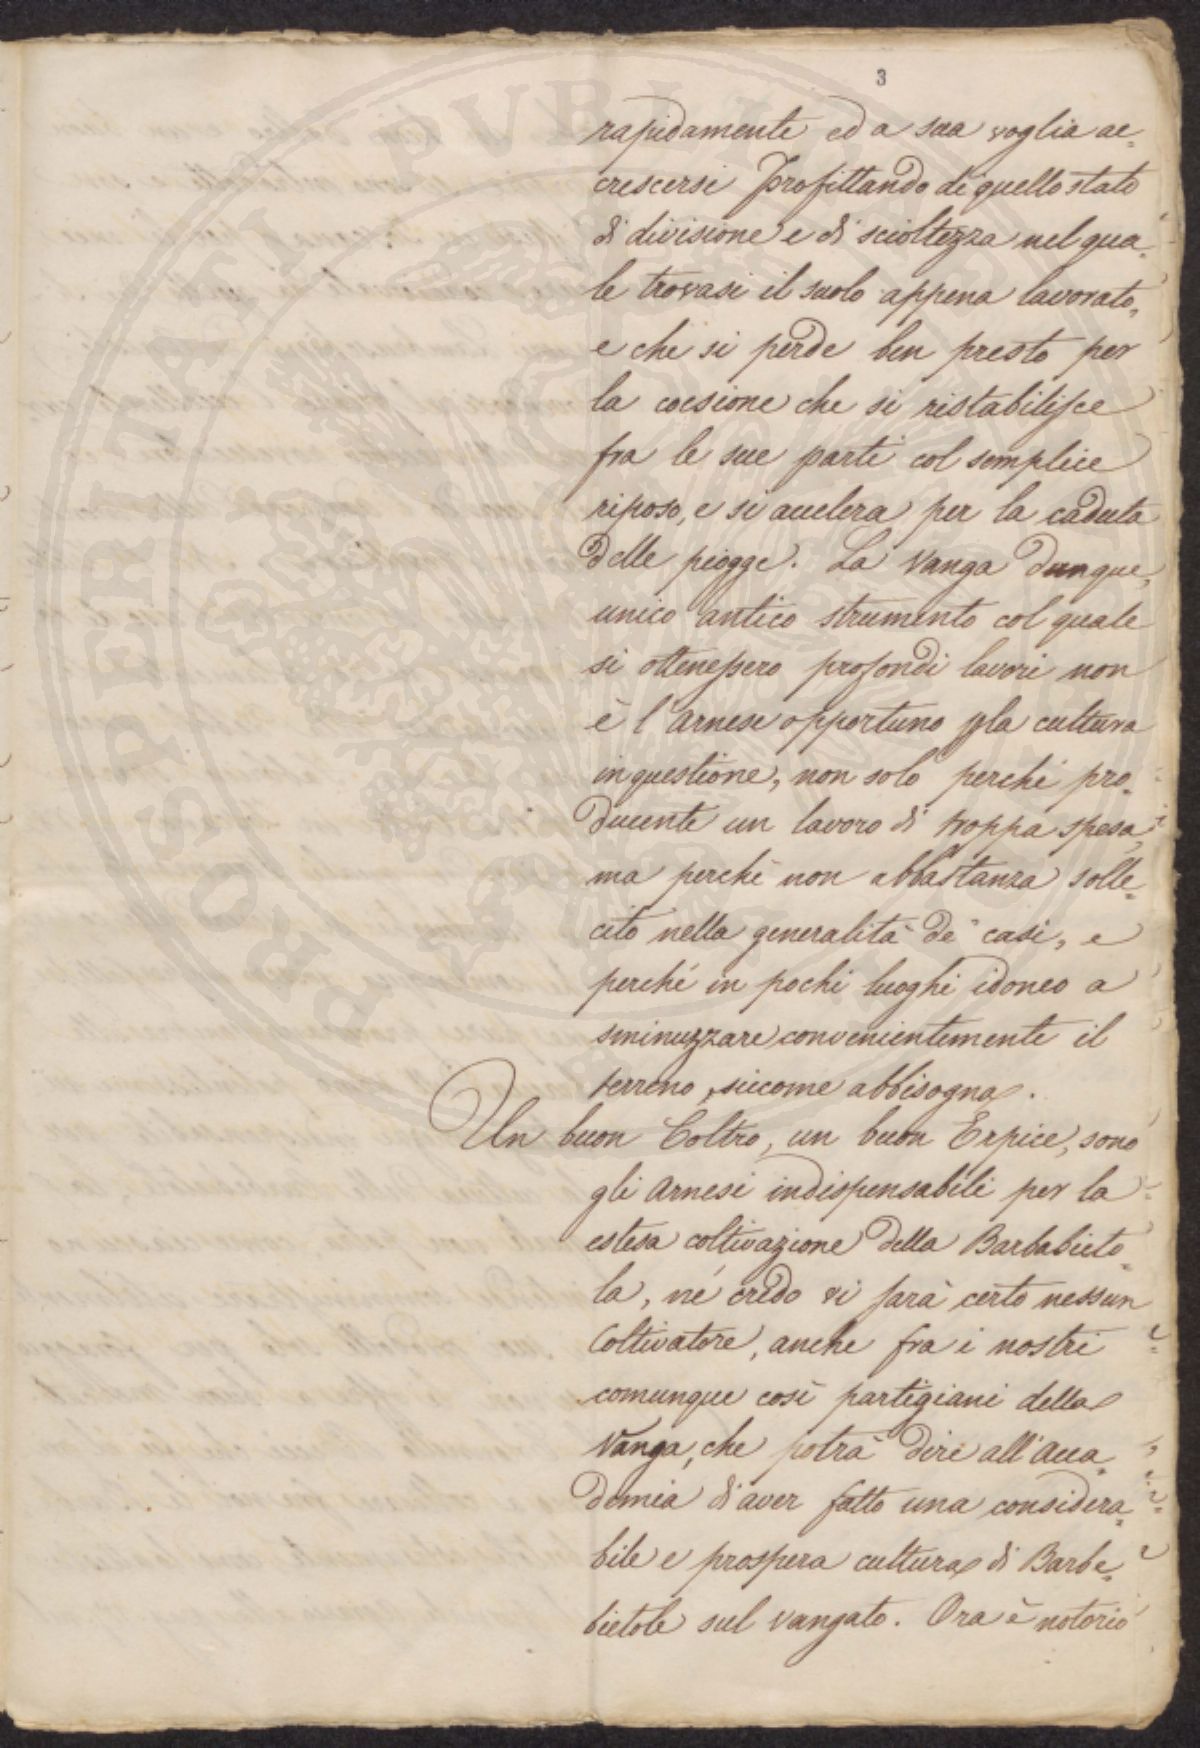 3
rapidamente ed a sua voglia ac=
crescersi profittando di quello stato
di divisione e di scioltezza nel qua=
le trovasi il suolo appena lavorato,
e che si perde ben presto per
la coesione che si ristabilisce
fra le sue parti col semplice
riposo, e si accelera per la caduta
delle piogge. La vanga dunque,
unico antico strumento col quale
si ottenessero profondi lavori non
è l'arnese opportuno p la cultura
in questione, non solo perchè pro=
ducente un lavoro di troppa spesa,
ma perchè non abbastanza solle=
cito nella generalità de' casi, e
perchè in pochi luoghi idoneo a
sminuzzare convenientemente il
terreno, siccome abbisogna.
Un buon Coltro, un buon Erpice, sono
gli arnesi indispensabili per la
estesa coltivazione della Barbabieto=
la, nè credo vi sarà certo nessun
Coltivatore, anche fra i nostri
comunque così partigiani della
Vanga, che potrà dire all'Acca=
demia di aver fatto una considera=
bile e prospera cultura di Barbe=
bietole sul vangato. Ora è notorio
PROSPERITATI PVBLICAE